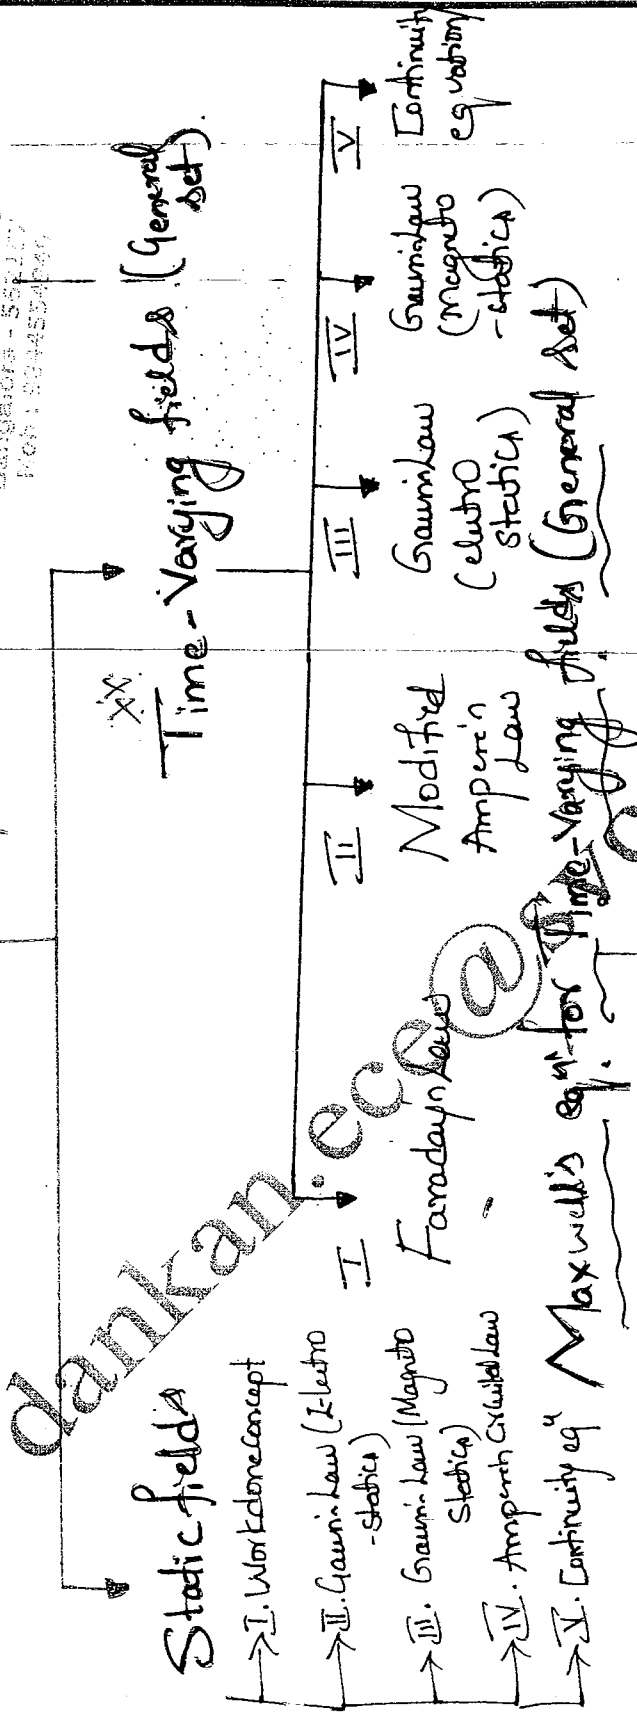 Static fields
I. Workdone concept
II. Gauss's Law (Electro
-Statics)
III. Gauss's Law (Magneto
Statics)
IV. Ampere's Circuital Law
V. Continuity eqn
XX
Time-Varying fields (General
Set).
I
Faraday's Law
II
Modified
Ampere's
Law
III
Gauss's Law
(electro
statics)
IV
Gauss's Law
(Magneto
-statics)
V
Continuity
equation
Maxwell's eqn. for Time-Varying fields (General set)
dankan.ece@